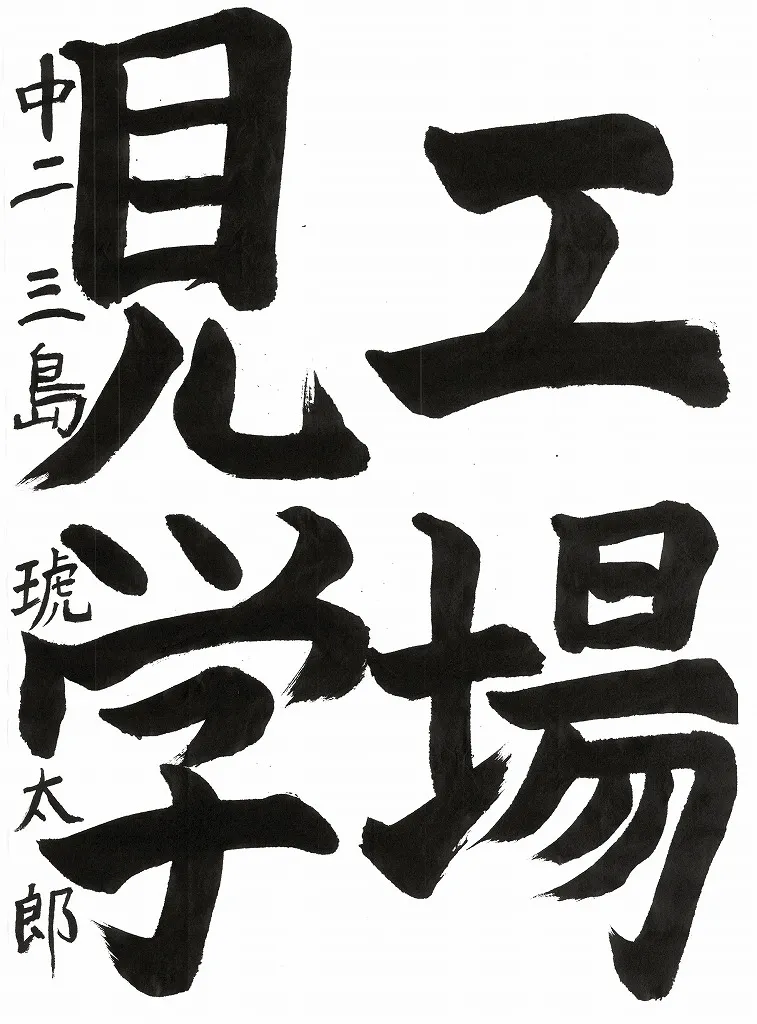 工場
見学
中二 三島 琥太郎